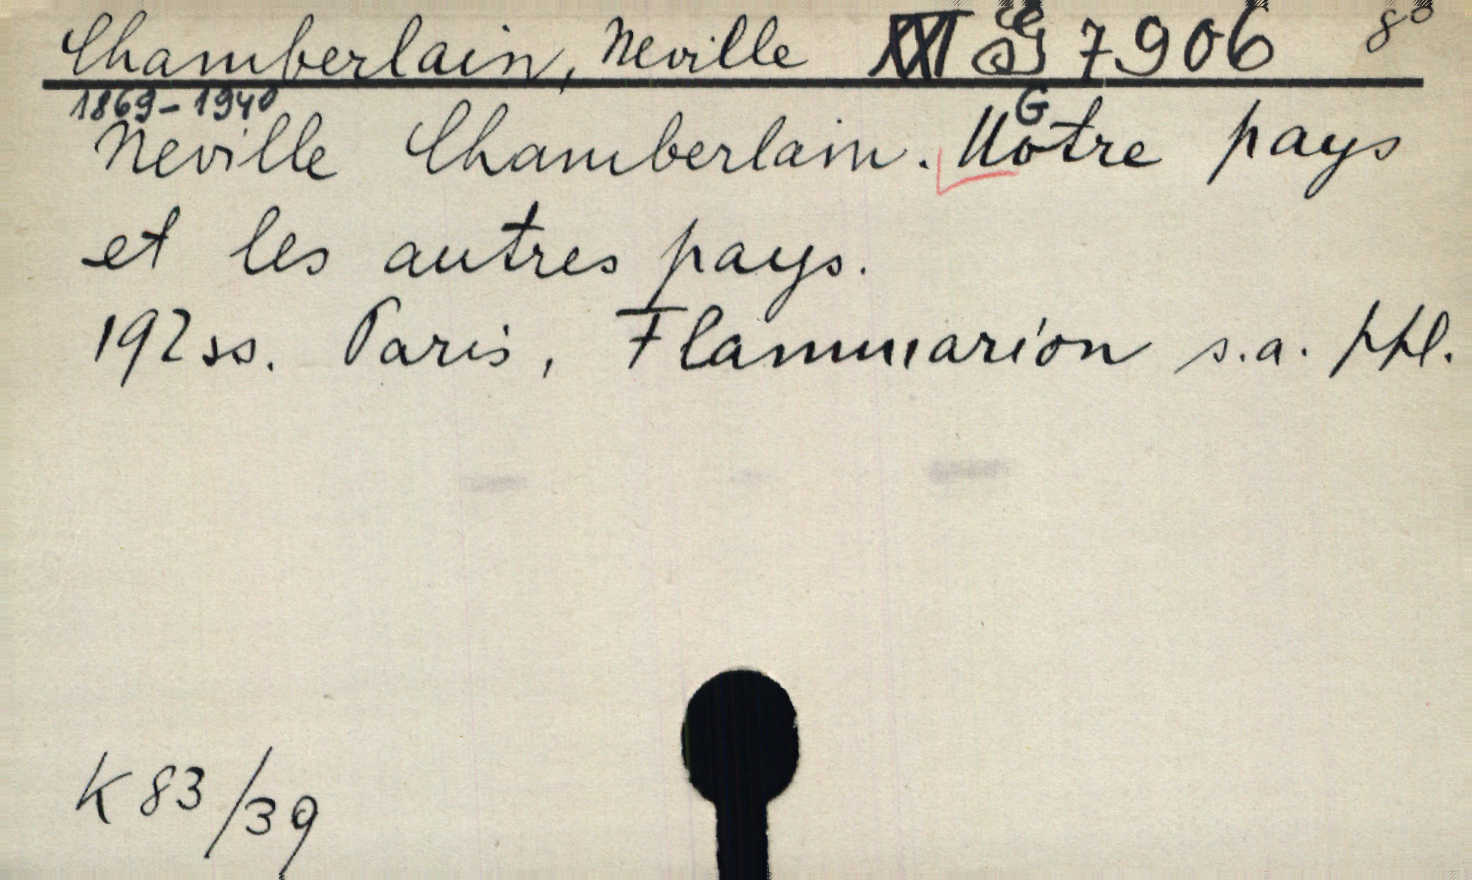 Chamberlain, Neville XXI 7906 8°
1869-1940
G
Neville Chamberlain. Notre pays
et les autres pays.
192 ss. Paris, Flammarion s.a. ppl.
K 83/39